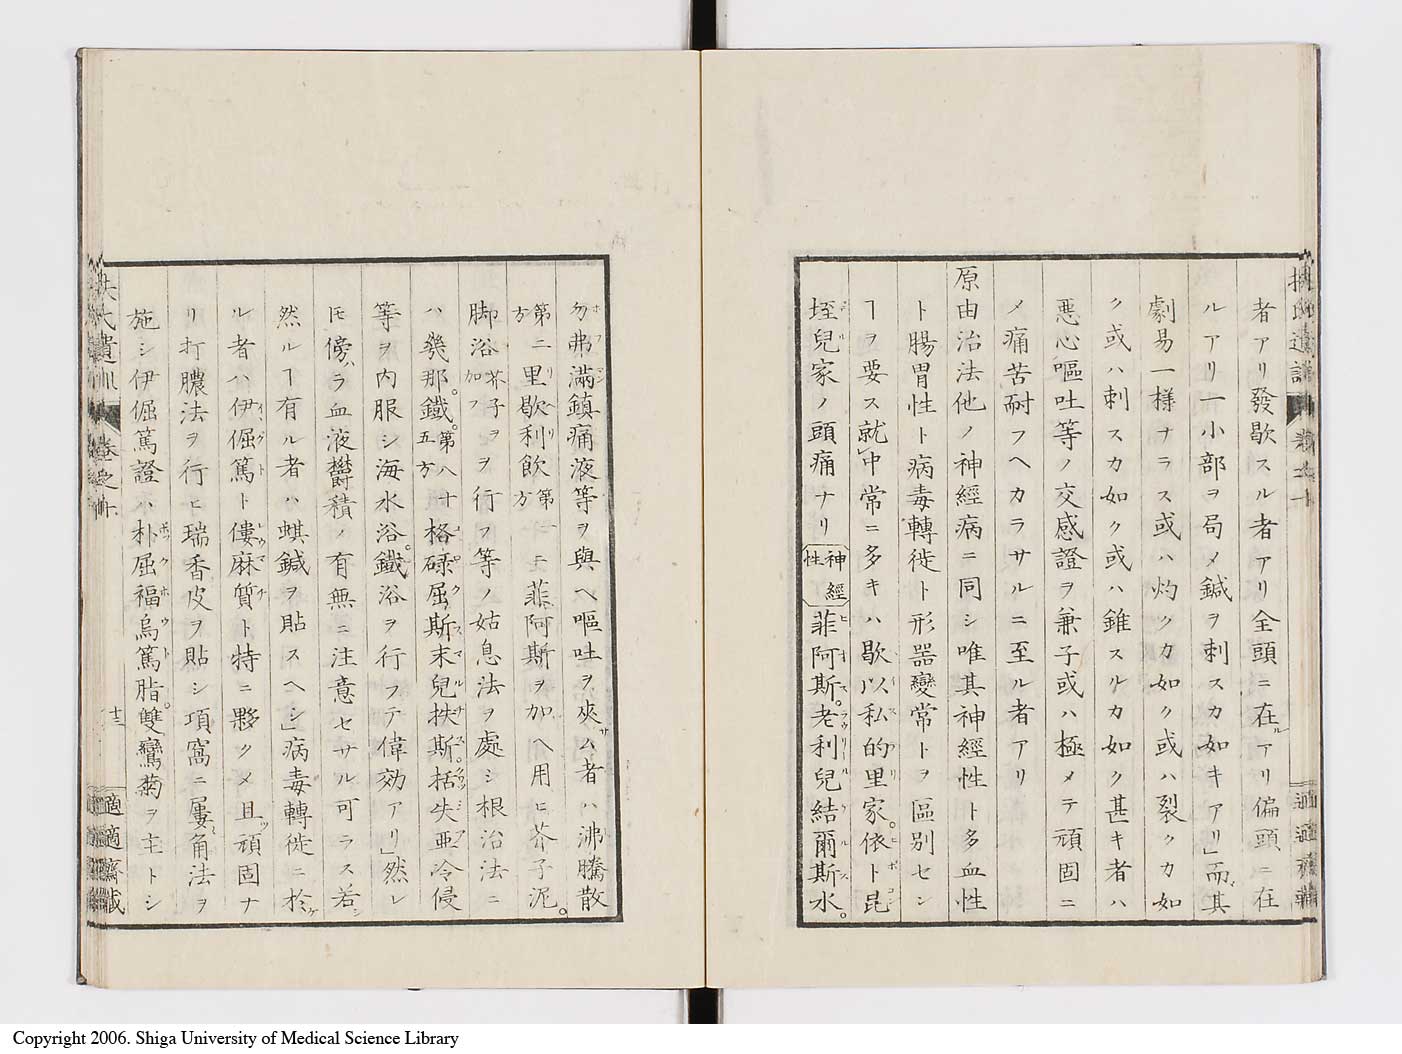 者アリ發歇スル者アリ全頭ニ在ルアリ偏頭ニ在
ルアリ一小部ヲ局メ鍼ヲ刺スカ如キアリ」而其
劇易一樣ナラス或ハ灼クカ如ク或ハ裂クカ如
ク或ハ刺スカ如ク或ハ錐スルカ如ク甚キ者ハ
惡心嘔吐等ノ交感證ヲ兼子或ハ極メテ頑固ニ
メ痛苦耐フヘカラサルニ至ル者アリ
原由治法他ノ神經病ニ同シ唯其神經性ト多血性
ト腸胃性ト病毒轉徙ト形器變常トヲ區別セン
ヿヲ要ス就中常ニ多キハ歇以私的里家。依卜昆
垤兒家ノ頭痛ナリ 神經性 菲阿斯。老利兒結爾斯水。
勿弗滿鎮痛液等ヲ與ヘ嘔吐ヲ夾ム者ハ沸騰散
第二方里歇利飲第一方ニ菲阿斯ヲ加ヘ用ヒ芥子泥。
脚浴芥子ヲ加フヲ行フ等ノ姑息法ヲ處シ根治法ニ
ハ幾那。鐵。第八十五方格碌屈斯末兒扶斯。括失亞冷侵
等ヲ内服シ海水浴。鐵浴ヲ行フテ偉効アリ」然レ
𪜈傍ラ血液欝積ノ有無ニ注意セサル可ラス若シ
然ルヿ有ル者ハ蜞鍼ヲ貼スヘシ」病毒轉徙ニ於ケ
ル者ハ伊倔篤ト僂麻質ト特ニ夥クメ且ツ頑固ナ
リ打膿法ヲ行ヒ瑞香皮ヲ貼シ項窩ニ屢角法ヲ
施シ伊倔篤證ハ朴屈福烏篤脂。雙鸞菊ヲ主トシ
扶氏遺訓
卷之十
十三
適適齋藏
Copyright 2006. Shiga University of Medical Science Library